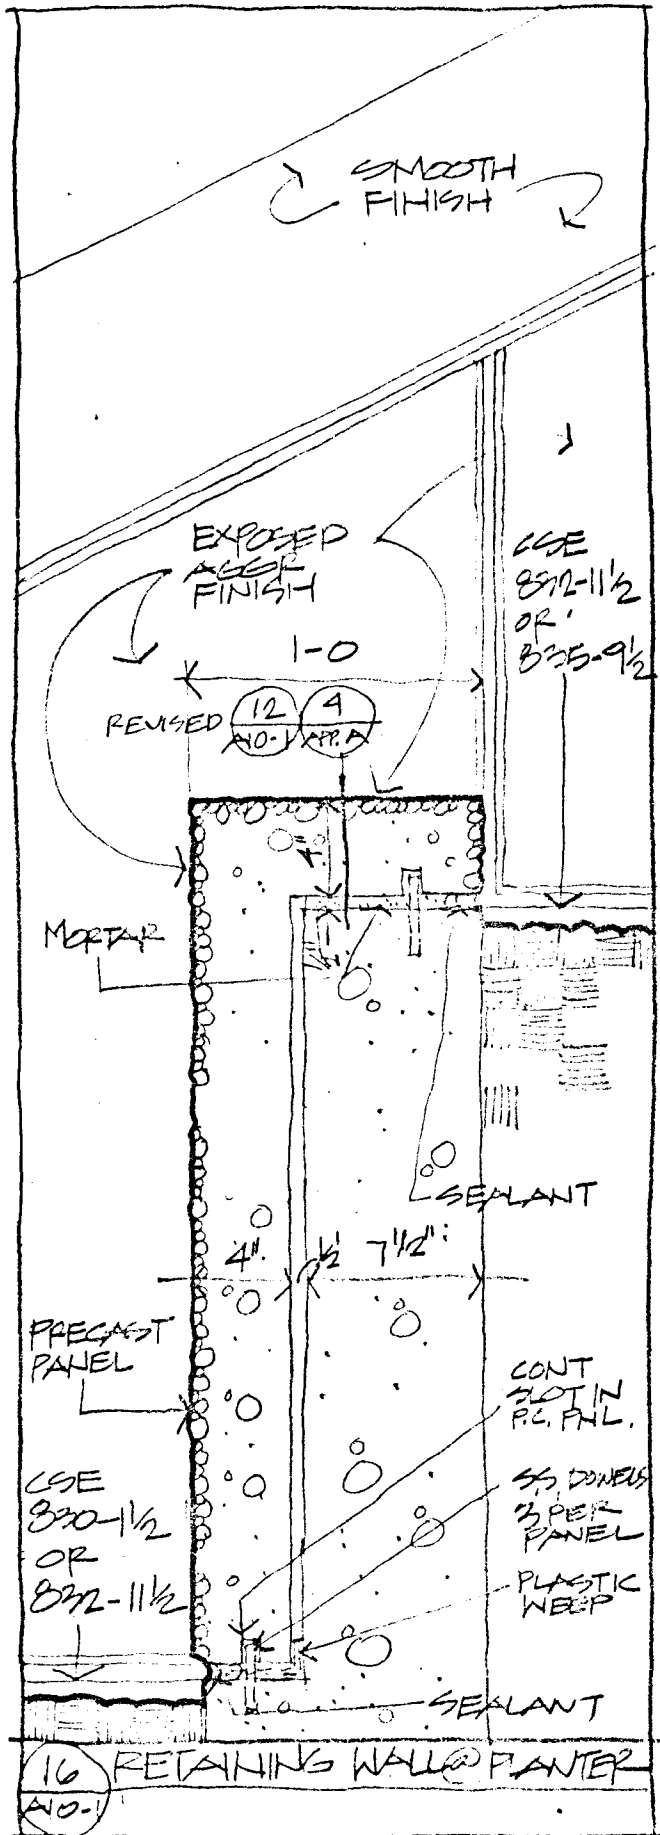 SMOOTH
FINISH
EXPOSED
AGGR
FINISH
CSE
832-11 1/2
OR
835-9 1/2
1-0
REVISED
12
A10-1
4
APP. A
4"
1"
MORTAR
SEALANT
4"
1/2
7 1/2"
PRECAST
PANEL
CONT
SLOT IN
P.C. PNL.
CSE
830-1 1/2
OR
832-11 1/2
S.S. DOWELS
3 PER
PANEL
PLASTIC
WEEP
SEALANT
16
A10-1
RETAINING WALL @ PLANTER